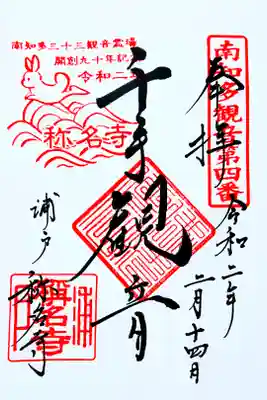 南知多観音第四番
奉拝
令和二年
二月十四日
千手観音
南知多三十三観音霊場
開創九十年記念
令和二年
称名寺
浦戸
称名寺